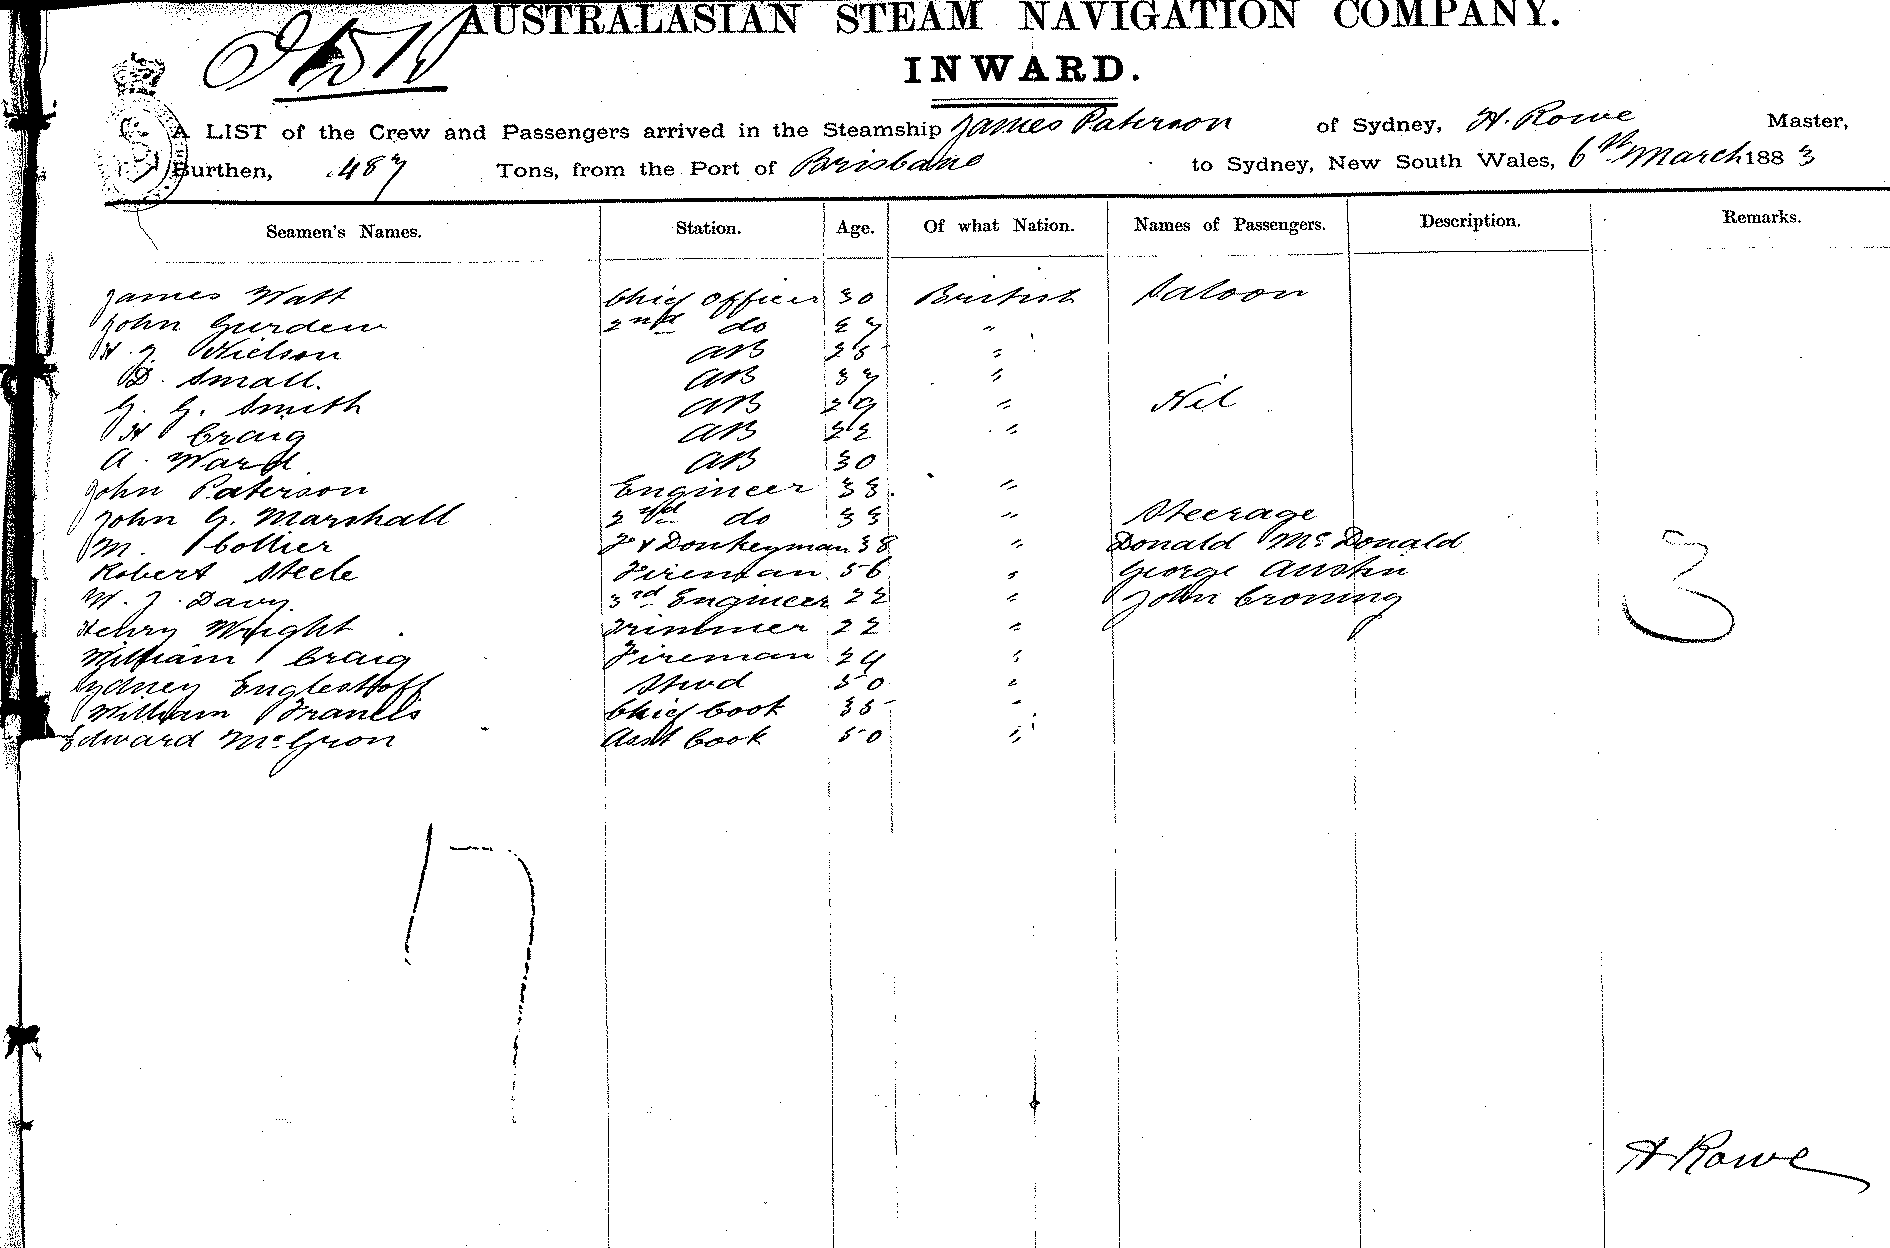 AUSTRALASIAN STEAM NAVIGATION COMPANY.
INWARD.
A LIST of the Crew and Passengers arrived in the Steamship James Paterson of Sydney, H. Rowe Master,
Burthen, 487 Tons, from the Port of Brisbane to Sydney, New South Wales, 6th March 1883
Seamen's Names. Station. Age. Of what Nation. Names of Passengers. Description. Remarks.
James Watt Chief Officer 30 British Saloon
John Gurden 2nd do 27 "
H. J. Nielson AB 25 "
D. Small. AB 37 "
G. G. Smith AB 29 " Nil
H Craig AB 22 "
A. Ward AB 30
John Paterson Engineer 33 "
John G. Marshall 2nd do 33 " Steerage
M. Collier F & Donkeyman 38 " Donald McDonald
Robert Steele Fireman 56 " George Austin
W. J. Davy 3rd Engineer 22 " John Croning
Henry Wright Trimmer 22 "
William Craig Fireman 24 "
Sydney Englesthoff Stwd 50 "
William Francis Chief Cook 35 "
Edward Asst Cook 50 "
3
17
H Rowe